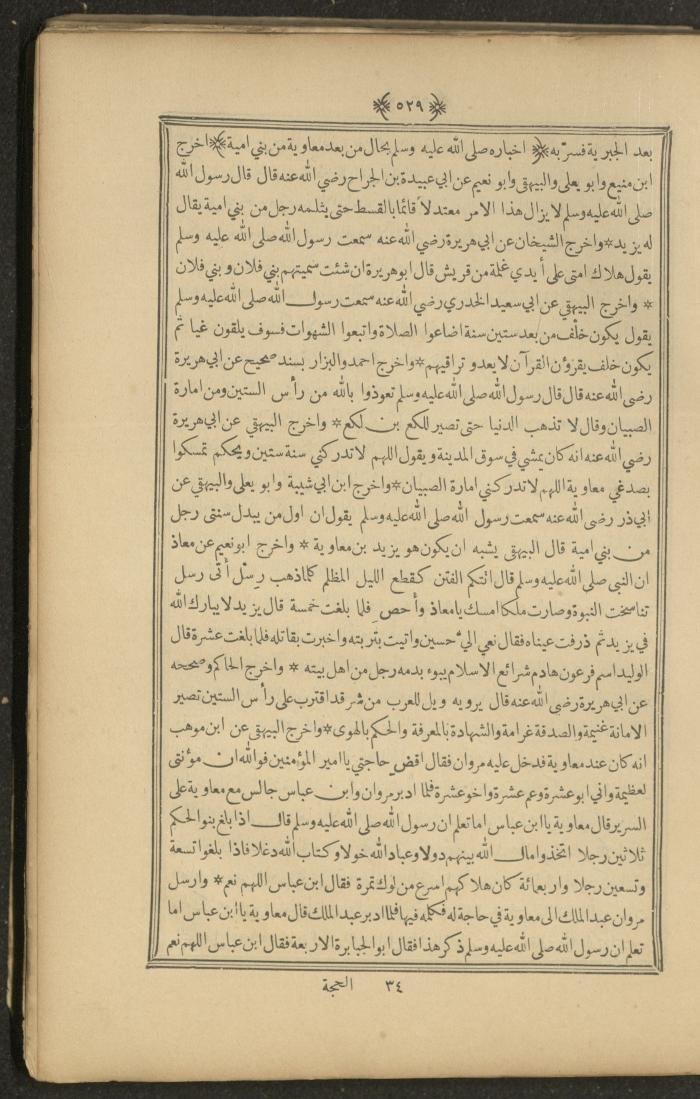 ٥٢٩
بعد الجبرية فسرّ به * اخباره صلى الله عليه وسلم بحال من بعد معاوية من بني امية * اخرج
ابن منيع وابو يعلى والبيهقي وابو نعيم عن ابي عبيدة بن الجراح رضي الله عنه قال قال رسول الله
صلى الله عليه وسلم لا يزال هذا الامر معتدلاً قائما بالقسط حتى يثلمه رجل من بني امية يقال
له يزيد * واخرج الشيخان عن ابي هريرة رضي الله عنه سمعت رسول الله صلى الله عليه وسلم
يقول هلاك امتى على أيدي غلمة من قريش قال ابو هريرة ان شئت سميتهم بني فلان وبني فلان
* واخرج البيهقي عن ابي سعيد الخدري رضي الله عنه سمعت رسول الله صلى الله عليه وسلم
يقول يكون خلف من بعد ستين سنة اضاعوا الصلاة واتبعوا الشهوات فسوف يلقون غيا ثم
يكون خلف يقرؤن القرآن لا يعدو تراقيهم * واخرج احمد والبزار بسند صحيح عن ابي هريرة
رضى الله عنه قال قال رسول الله صلى الله عليه وسلم تعوذوا بالله من رأس الستين ومن امارة
الصبيان وقال لا تذهب الدنيا حتى تصير للكع بن لكع * واخرج البيهقي عن ابي هريرة
رضي الله عنه انه كان يمشي في سوق المدينة ويقول اللهم لا تدركني سنة ستين ويحكم تمسكوا
بصدغي معاوية اللهم لا تدركني امارة الصبيان * واخرج ابن ابي شيبة وابو يعلى والبيهقي عن
ابي ذر رضى الله عنه سمعت رسول الله صلى الله عليه وسلم يقول ان اول من يبدل سنتى رجل
من بني امية قال البيهقي يشبه ان يكون هو يزيد بن معاوية * واخرج ابو نعيم عن معاذ
ان النبى صلى الله عليه وسلم قال اتتكم الفتن كقطع الليل المظلم كلما ذهب رسل أتى رسل
تناسخت النبوة وصارت ملكا امسك يا معاذ وأحص فلما بلغت خمسة قال يزيد لا يبارك الله
في يزيد ثم ذرفت عيناه فقال نعي اليّ حسين واتيت بتربته واخبرت بقاتله فلما بلغت عشرة قال
الوليد اسم فرعون هادم شرائع الاسلام يبوء بدمه رجل من اهل بيته * واخرج الحاكم وصححه
عن ابي هريرة رضى الله عنه قال يرويه ويل للعرب من شر قد اقترب على رأس الستين تصير
الامانة غنيمة والصدقة غرامة والشهادة بالمعرفة والحكم بالهوى * واخرج البيهقي عن ابن موهب
انه كان عند معاوية فدخل عليه مروان فقال اقض حاجتي يا امير المؤمنين فوالله ان مؤنتى
لعظيمة واني ابو عشرة وعم عشرة واخو عشرة فلما ادبر مروان وابن عباس جالس مع معاوية على
السرير قال معاوية يا ابن عباس اما تعلم ان رسول الله صلى الله عليه وسلم قال اذا بلغ بنو الحكم
ثلاثين رجلا اتخذوا مال الله بينهم دولا وعباد الله خولا وكتاب الله دغلا فاذا بلغوا تسعة
وتسعين رجلا واربعمائة كان هلاكهم اسرع من لوك تمرة فقال ابن عباس اللهم نعم * وارسل
مروان عبد الملك الى معاوية في حاجة له فكلمه فيها فلما ادبر عبد الملك قال معاوية يا ابن عباس اما
تعلم ان رسول الله صلى الله عليه وسلم ذكر هذا فقال ابو الجبابرة الاربعة فقال ابن عباس اللهم نعم
٣٤ الحجة